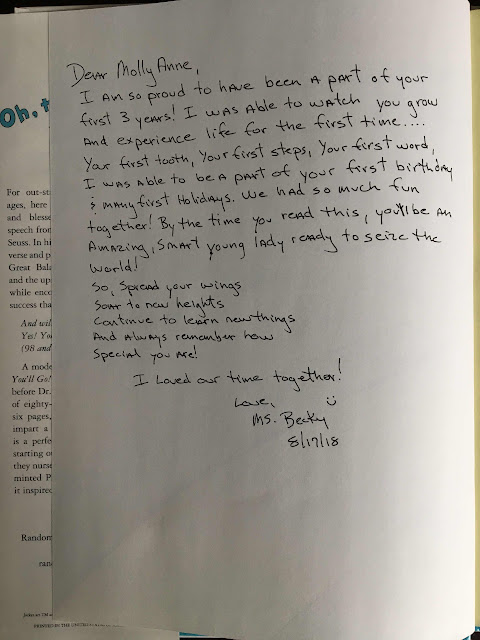 Dear Molly Anne,
I am so proud to have been a part of your
first 3 years! I was able to watch you grow
and experience life for the first time....
Your first tooth, Your first steps, Your first word,
I was able to be a part of your first birthday
& many first Holidays. We had so much fun
together! By the time you read this, you'll be an
Amazing, Smart young lady ready to seize the
world!
So, Spread your wings
Soar to new heights
Continue to learn new things
And always remember how
Special you are!
I loved our time together!
Love,
Ms. Becky
8/17/18
Oh, t
For out-st
ages, here
and blesse
speech from
Seuss. In hi
verse and p
Great Bala
and the up
while enco
success tha
And wil
Yes! Yo
(98 and
A mode
You'll Go!
before Dr.
of eighty-
six pages,
impart a
is a perfe
starting o
they nurse
minted P
it inspire
Random
ran